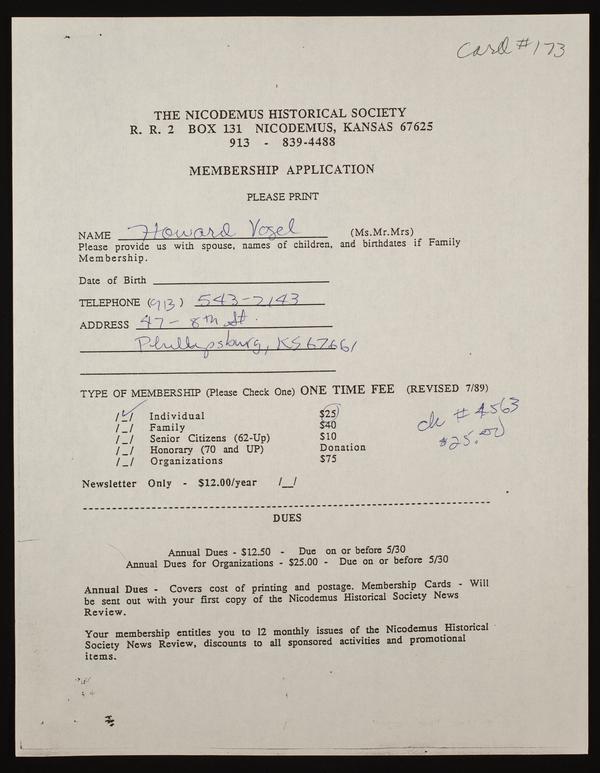 Card #173
THE NICODEMUS HISTORICAL SOCIETY
R. R. 2 BOX 131 NICODEMUS, KANSAS 67625
913 - 839-4488
MEMBERSHIP APPLICATION
PLEASE PRINT
NAME Howard Vogel (Ms.Mr.Mrs)
Please provide us with spouse, names of children, and birthdates if Family
Membership.
Date of Birth
TELEPHONE (913) 543-2143
ADDRESS 47 - 8th St.
Phillipsburg, KS 67661
TYPE OF MEMBERSHIP (Please Check One) ONE TIME FEE (REVISED 7/89)
/✓/ Individual $25
/_/ Family $40
/_/ Senior Citizens (62-Up) $10
/_/ Honorary (70 and UP) Donation
/_/ Organizations $75
ck # 4563
$25.00
Newsletter Only - $12.00/year /__/
DUES
Annual Dues - $12.50 - Due on or before 5/30
Annual Dues for Organizations - $25.00 - Due on or before 5/30
Annual Dues - Covers cost of printing and postage. Membership Cards - Will
be sent out with your first copy of the Nicodemus Historical Society News
Review.
Your membership entitles you to 12 monthly issues of the Nicodemus Historical
Society News Review, discounts to all sponsored activities and promotional
items.